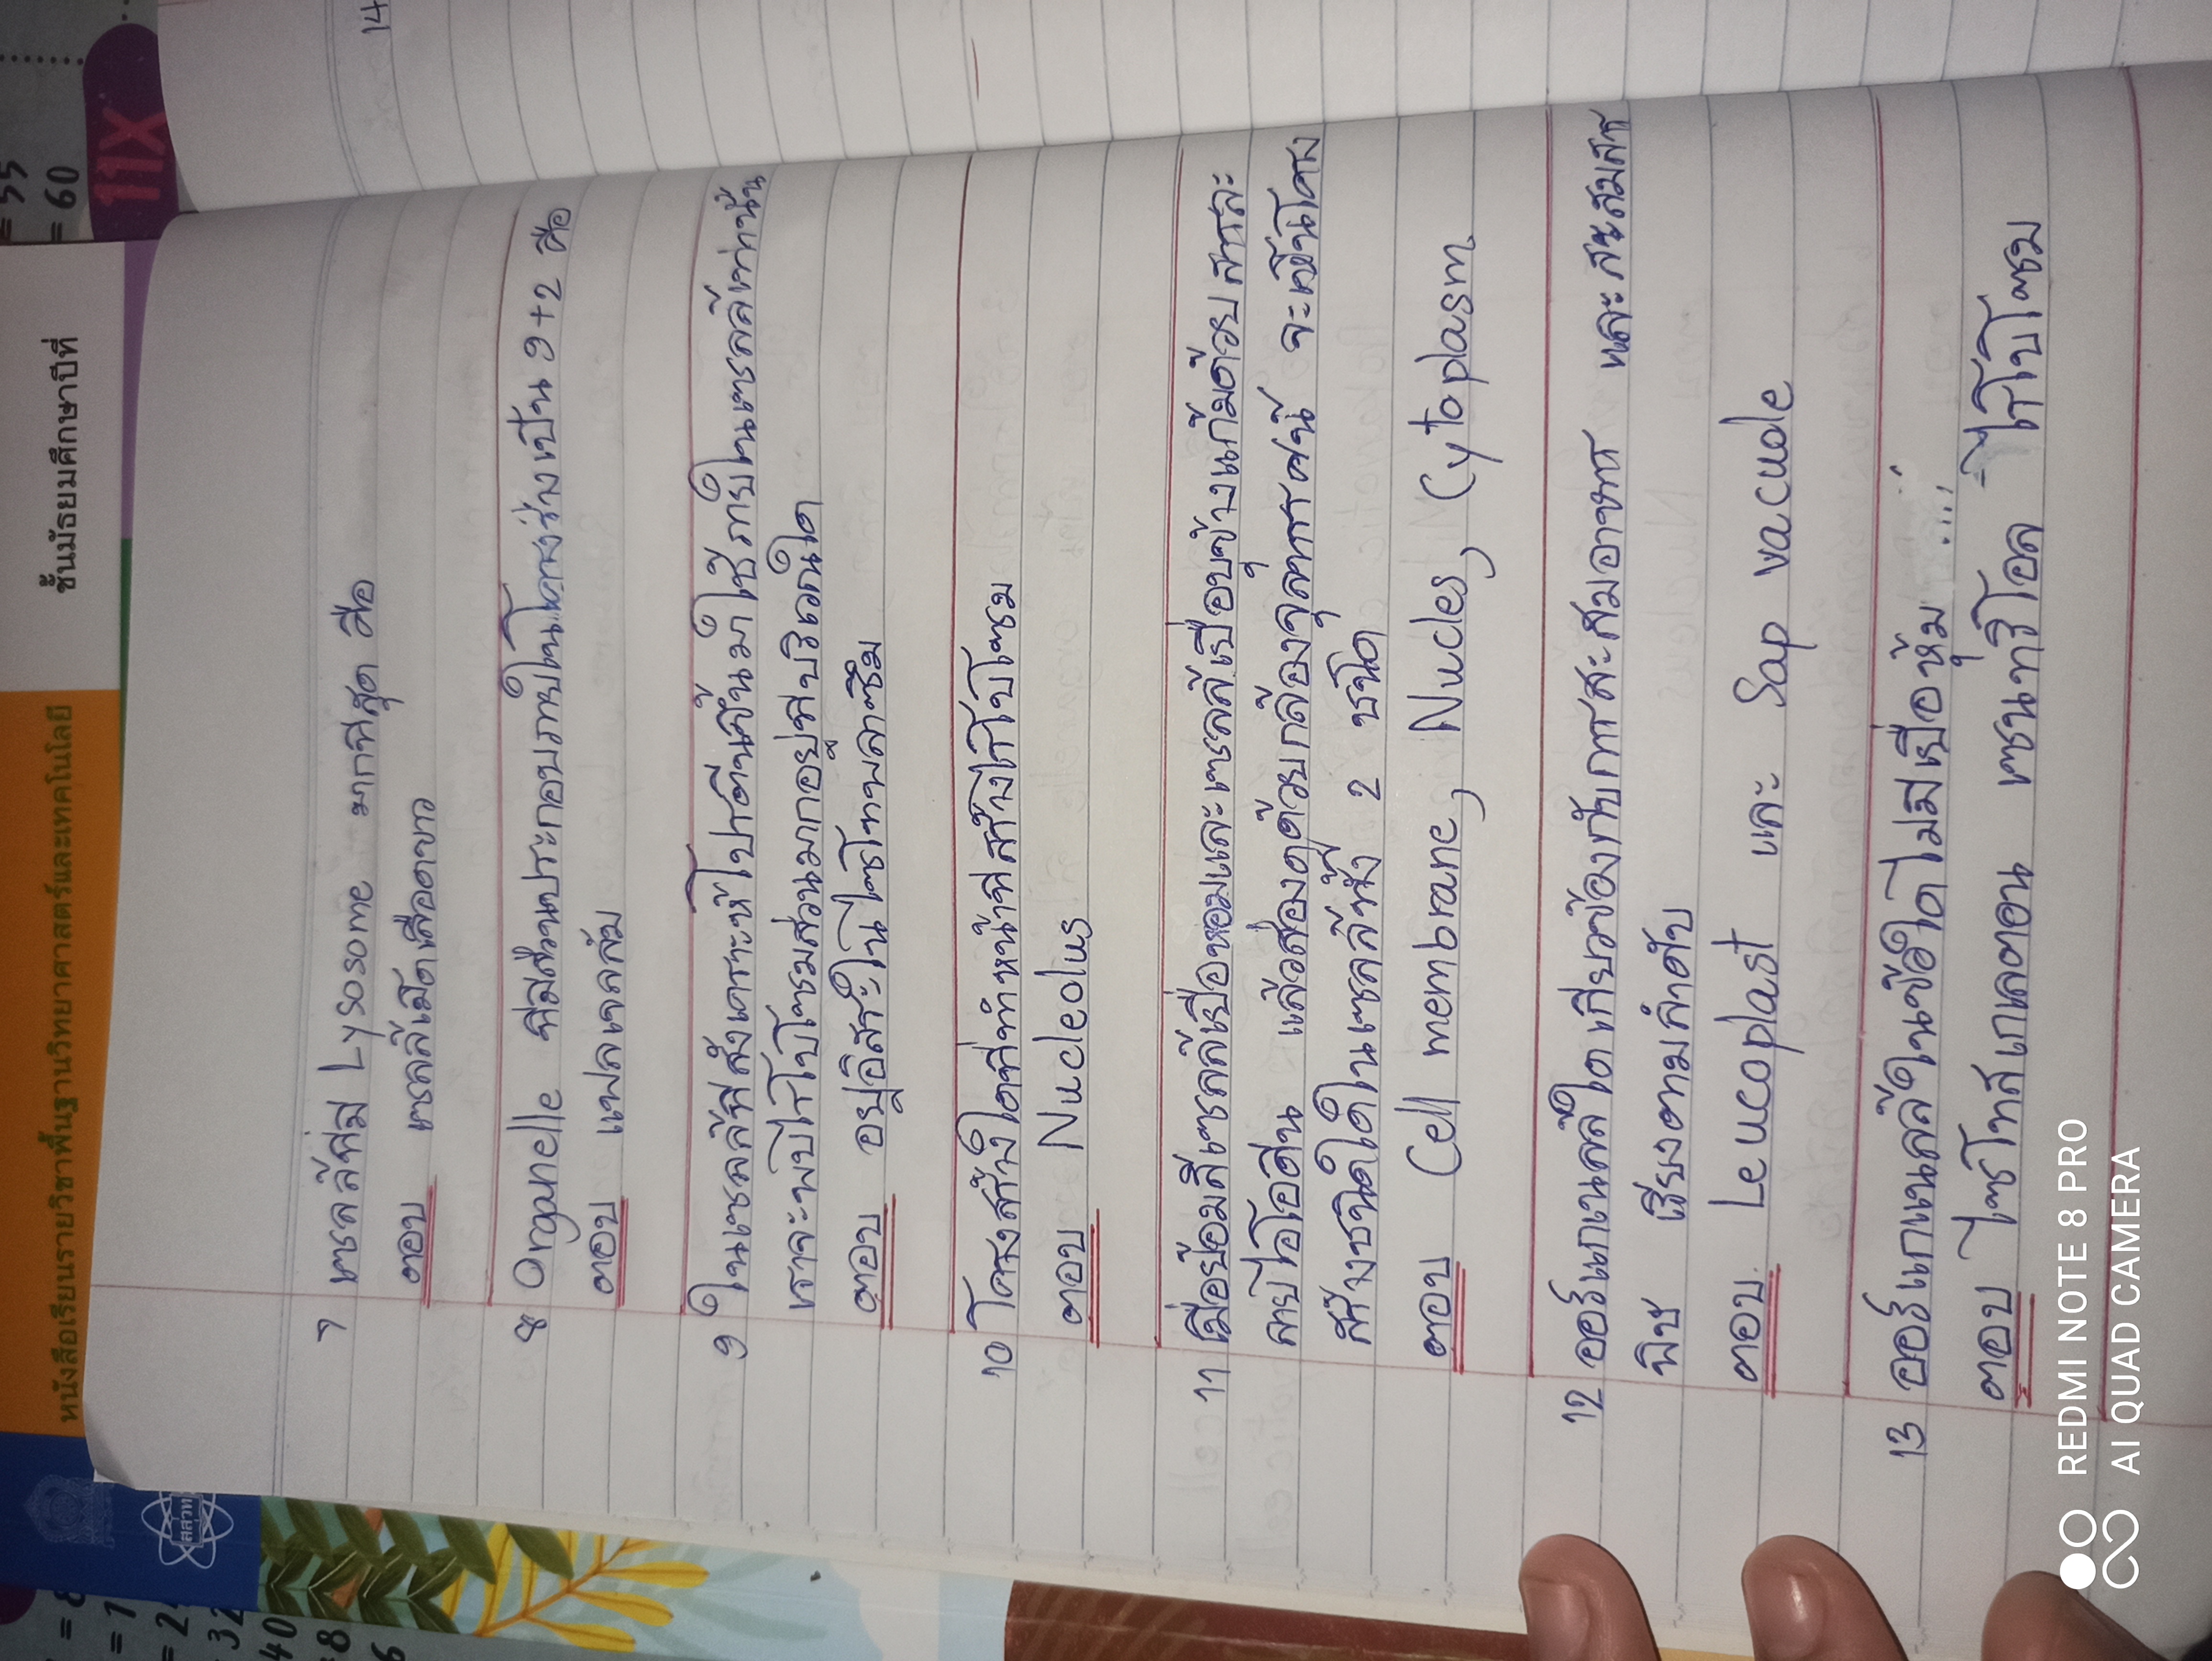 หนังสือเรียนรายวิชาพื้นฐานวิทยาศาสตร์และเทคโนโลยี
ชั้นมัธยมศึกษาปีที่
สสวท
= 55
= 60
11X
14
7 เซลล์ที่มี Lysosome มากที่สุด คือ
ตอบ เซลล์เม็ดเลือดขาว
8 Organelle ที่มีส่วนประกอบภายในโครงร่างเป็น 9+2 คือ
ตอบ แฟลเจลลัม
9 ในเซลล์ที่สังเคราะห์โปรตีนขึ้นมาใช้ภายในเซลล์เท่านั้น
เราจะพบไรโบโซมส่วนมากอยู่ที่บริเวณใด
ตอบ อยู่อิสระในไซโทพลาซึม
10 โครงสร้างใดที่ทำหน้าที่สร้างไรโบโซม
ตอบ Nucleolus
11 เมื่อย้อมสีเซลล์เยื่อหอมและเซลล์เยื่อบุข้างแก้มด้วย สารละ
ลายไอโอดีน แล้วส่องดูด้วยกล้องจุลทรรศน์ จะเห็นโครง
สร้างชนิดใดในเซลล์ทั้ง 2 ชนิด
ตอบ Cell membrane, Nucles, Cytoplasm
12 ออร์แกเนลล์ใด เกี่ยวข้องกับการสะสมอาหาร และสะสมสาร
พิษ เรียงตามลำดับ
ตอบ Leucoplast และ Sap vacuole
13 ออร์แกเนลล์ในข้อใดไม่มีเยื่อหุ้ม
ตอบ ไซโทสเกเลตอน เซนทริโอล ไรโบโซม
REDMI NOTE 8 PRO
AI QUAD CAMERA